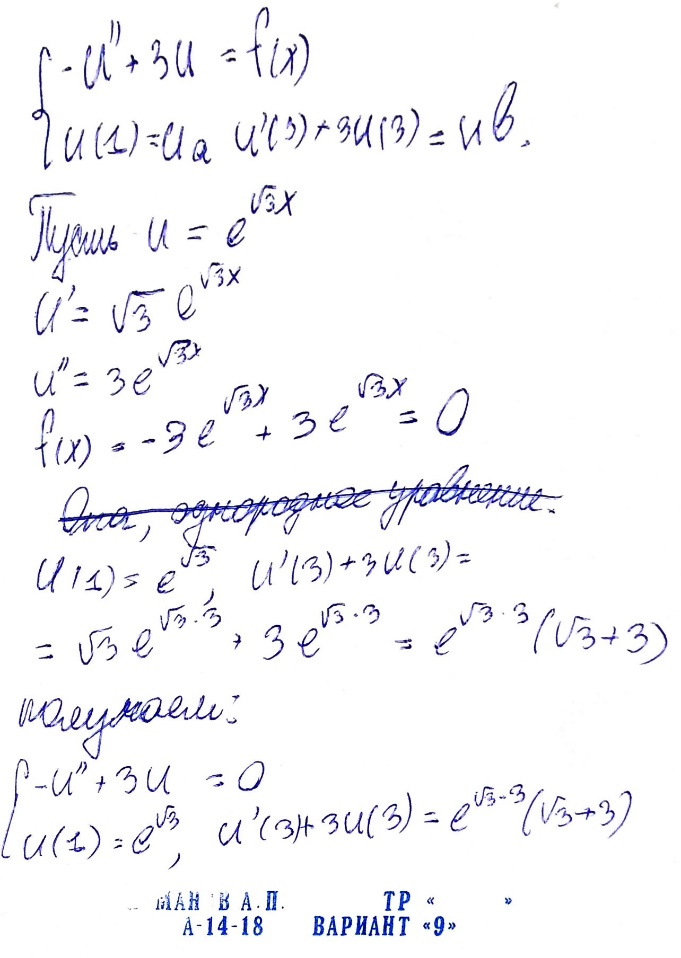 -u'' + 3u = f(x)
u(1) = ua u'(3) + 3u(3) = uв.
Пусть u = e^{√3x}
u' = √3 e^{√3x}
u'' = 3e^{√3x}
f(x) = -3e^{√3x} + 3e^{√3x} = 0
однородное уравнение.
u(1) = e^{√3}, u'(3) + 3u(3) =
= √3 e^{√3·3} + 3e^{√3·3} = e^{√3·3}(√3+3)
получаем:
-u'' + 3u = 0
u(1) = e^{√3}, u'(3) + 3u(3) = e^{√3·3}(√3+3)
В А.П. ТР « »
А-14-18 ВАРИАНТ «9»